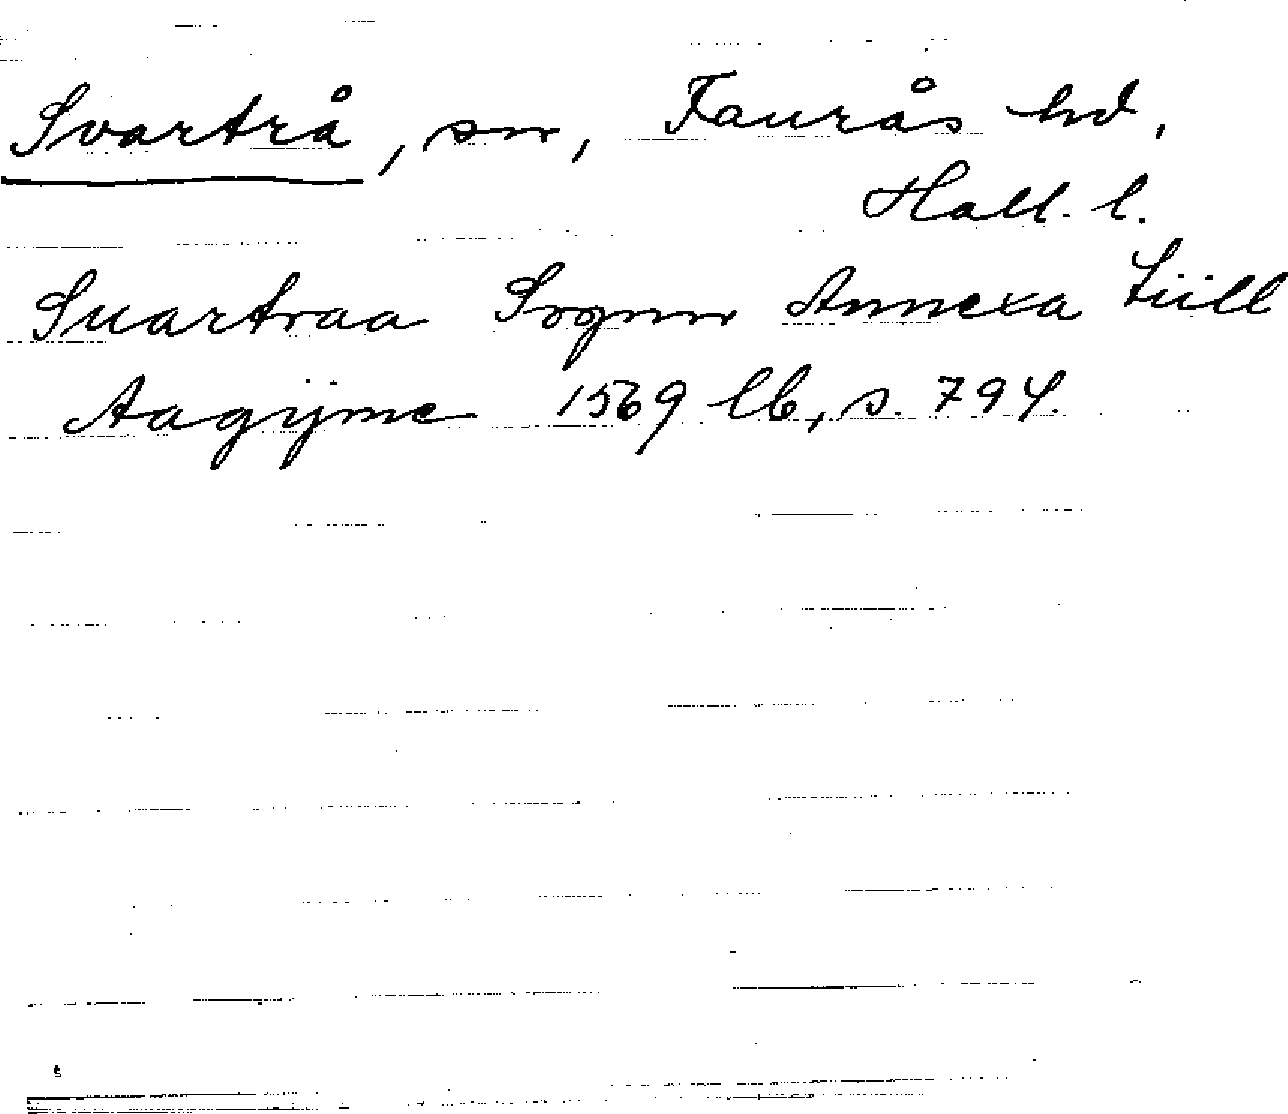 Svartrå, sn, Faurås hd,
Hall. l.
Suartraa Sognn Annexa tiill
Aagÿme 1569 lb, s. 794.